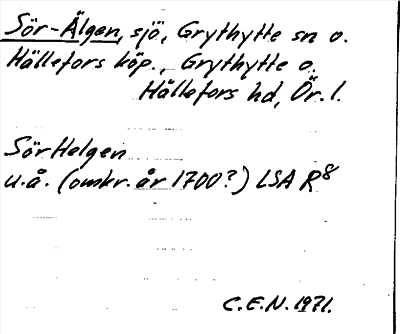 Sör-Älgen, sjö, Grythytte sn o.
Hällefors köp., Grythytte o.
Hällefors hd, Ör. l.
Sör Helgen
u.å. (omkr. år 1700?) LSA R8
C.E.N. 1971.